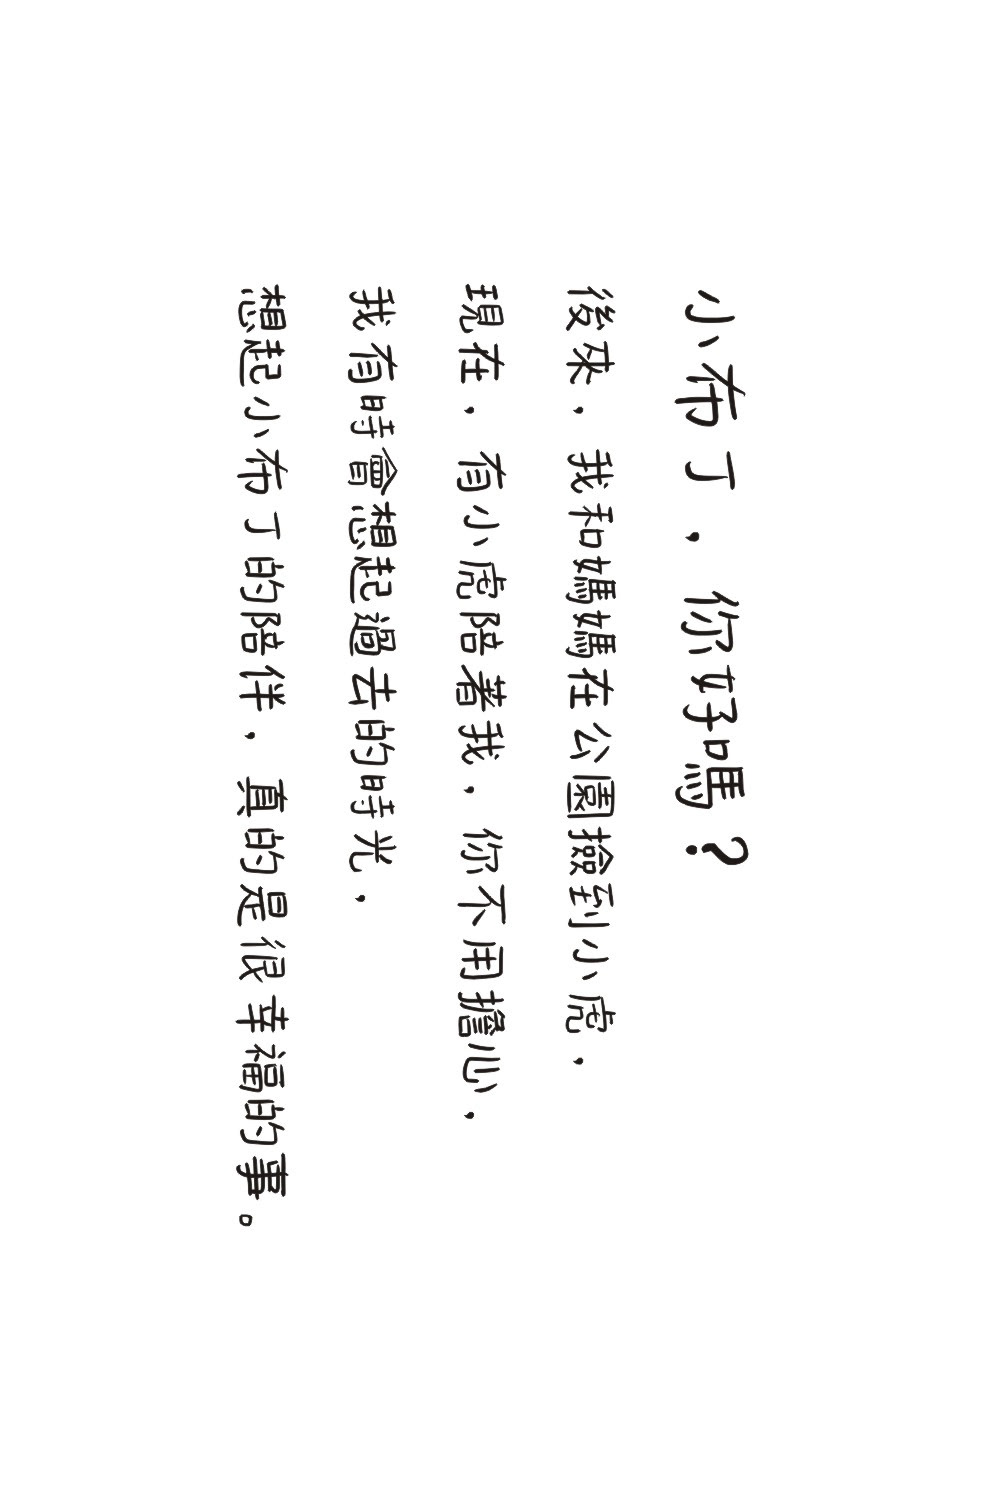 小布丁，你好嗎？
後來，我和媽媽在公園撿到小虎，
現在，有小虎陪著我，你不用擔心，
我有時會想起過去的時光，
想起小布丁的陪伴，真的是很幸福的事。